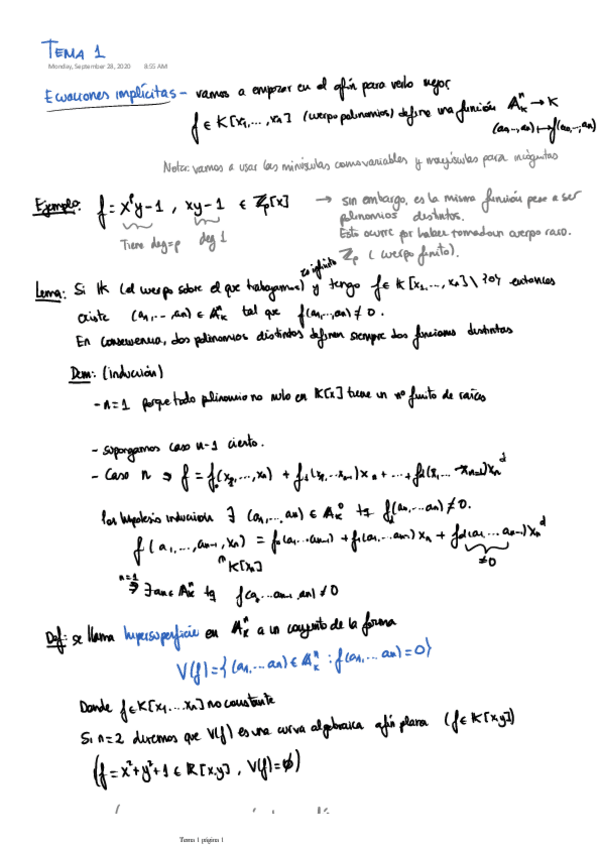 TEMA 1
Monday, September 28, 2020 8:55 AM
Ecuaciones implícitas - vamos a empezar en el afín para verlo mejor
f ∈ K[x₁,...,xₙ] (cuerpo polinomios) define una función 𝔸ⁿ_K → K
(a₁,...,aₙ) ↦ f(a₁,...,aₙ)
Nota: vamos a usar las minúsculas como variables y mayúsculas para incógnitas
Ejemplo: f = xᵖy-1 , xy-1 ∈ ℤₚ[x] → sin embargo, es la misma función pese a ser
polinomios distintos.
Tiene deg=p deg 1
Esto ocurre por haber tomado un cuerpo raro.
ℤₚ (cuerpo finito).
es infinito
Lema: Si K (el cuerpo sobre el que trabajamos) y tengo f ∈ K[x₁,...,xₙ]\{0} entonces
existe (a₁,...,aₙ) ∈ 𝔸ⁿ_K tal que f(a₁,...,aₙ) ≠ 0.
En consecuencia, dos polinomios distintos definen siempre dos funciones distintas
Dem: (inducción)
- n=1 porque todo plinomio no nulo en K[x] tiene un nº finito de raíces
- supongamos caso n-1 cierto.
- Caso n ⇒ f = f₀(x₁,...,xₙ) + f₁(x₁,...xₙ₋₁)xₙ + ... + f_d(x₁...xₙ₋₁)xₙᵈ
Por hipótesis inducción ∃ (a₁,...,aₙ) ∈ 𝔸 tq f_d(a₁,...aₙ) ≠ 0.
f(a₁,...,aₙ₋₁,xₙ) = f₀(a₁...aₙ₋₁) + f₁(a₁,...aₙ₋₁)xₙ + f_d(a₁...aₙ₋₁)xₙᵈ
∩ K[xₙ] ≠0
n=1 ⇒ ∃ aₙ ∈ 𝔸ⁿ_K tq f(a₁...aₙ₋₁,aₙ) ≠ 0
Def: se llama hipersuperficie en 𝔸ⁿ_K a un conjunto de la forma
V(f) = {(a₁,...aₙ) ∈ 𝔸ⁿ_K : f(a₁,...aₙ) = 0}
Donde f ∈ K[x₁...xₙ] no constante
Si n=2 diremos que V(f) es una curva algebraica afín plana (f ∈ K[x,y])
(f = x²+y²+1 ∈ ℝ[x,y] , V(f)=∅)
Tema 1 página 1